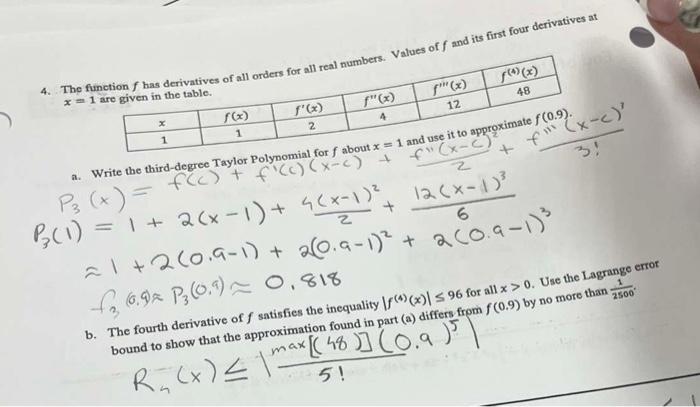 4. The function f has derivatives of all orders for all real numbers. Values of f and its first four derivatives at
x = 1 are given in the table.
x f(x) f'(x) f''(x) f'''(x) f⁽⁴⁾(x)
1 1 2 4 12 48
a. Write the third-degree Taylor Polynomial for f about x = 1 and use it to approximate f(0.9).
P₃(x) = f(c) + f'(c)(x-c) + f''(x-c)²/2 + f'''(x-c)³/3!
P₃(1) = 1 + 2(x-1) + 4(x-1)²/2 + 12(x-1)³/6
≈ 1 + 2(0.9-1) + 2(0.9-1)² + 2(0.9-1)³
f₃(0.9) ≈ P₃(0.9) ≈ 0.818
b. The fourth derivative of f satisfies the inequality |f⁽⁴⁾(x)| ≤ 96 for all x > 0. Use the Lagrange error
bound to show that the approximation found in part (a) differs from f(0.9) by no more than 1/2500.
R₄(x) ≤ | max[(48)](0.9)⁵/5! |